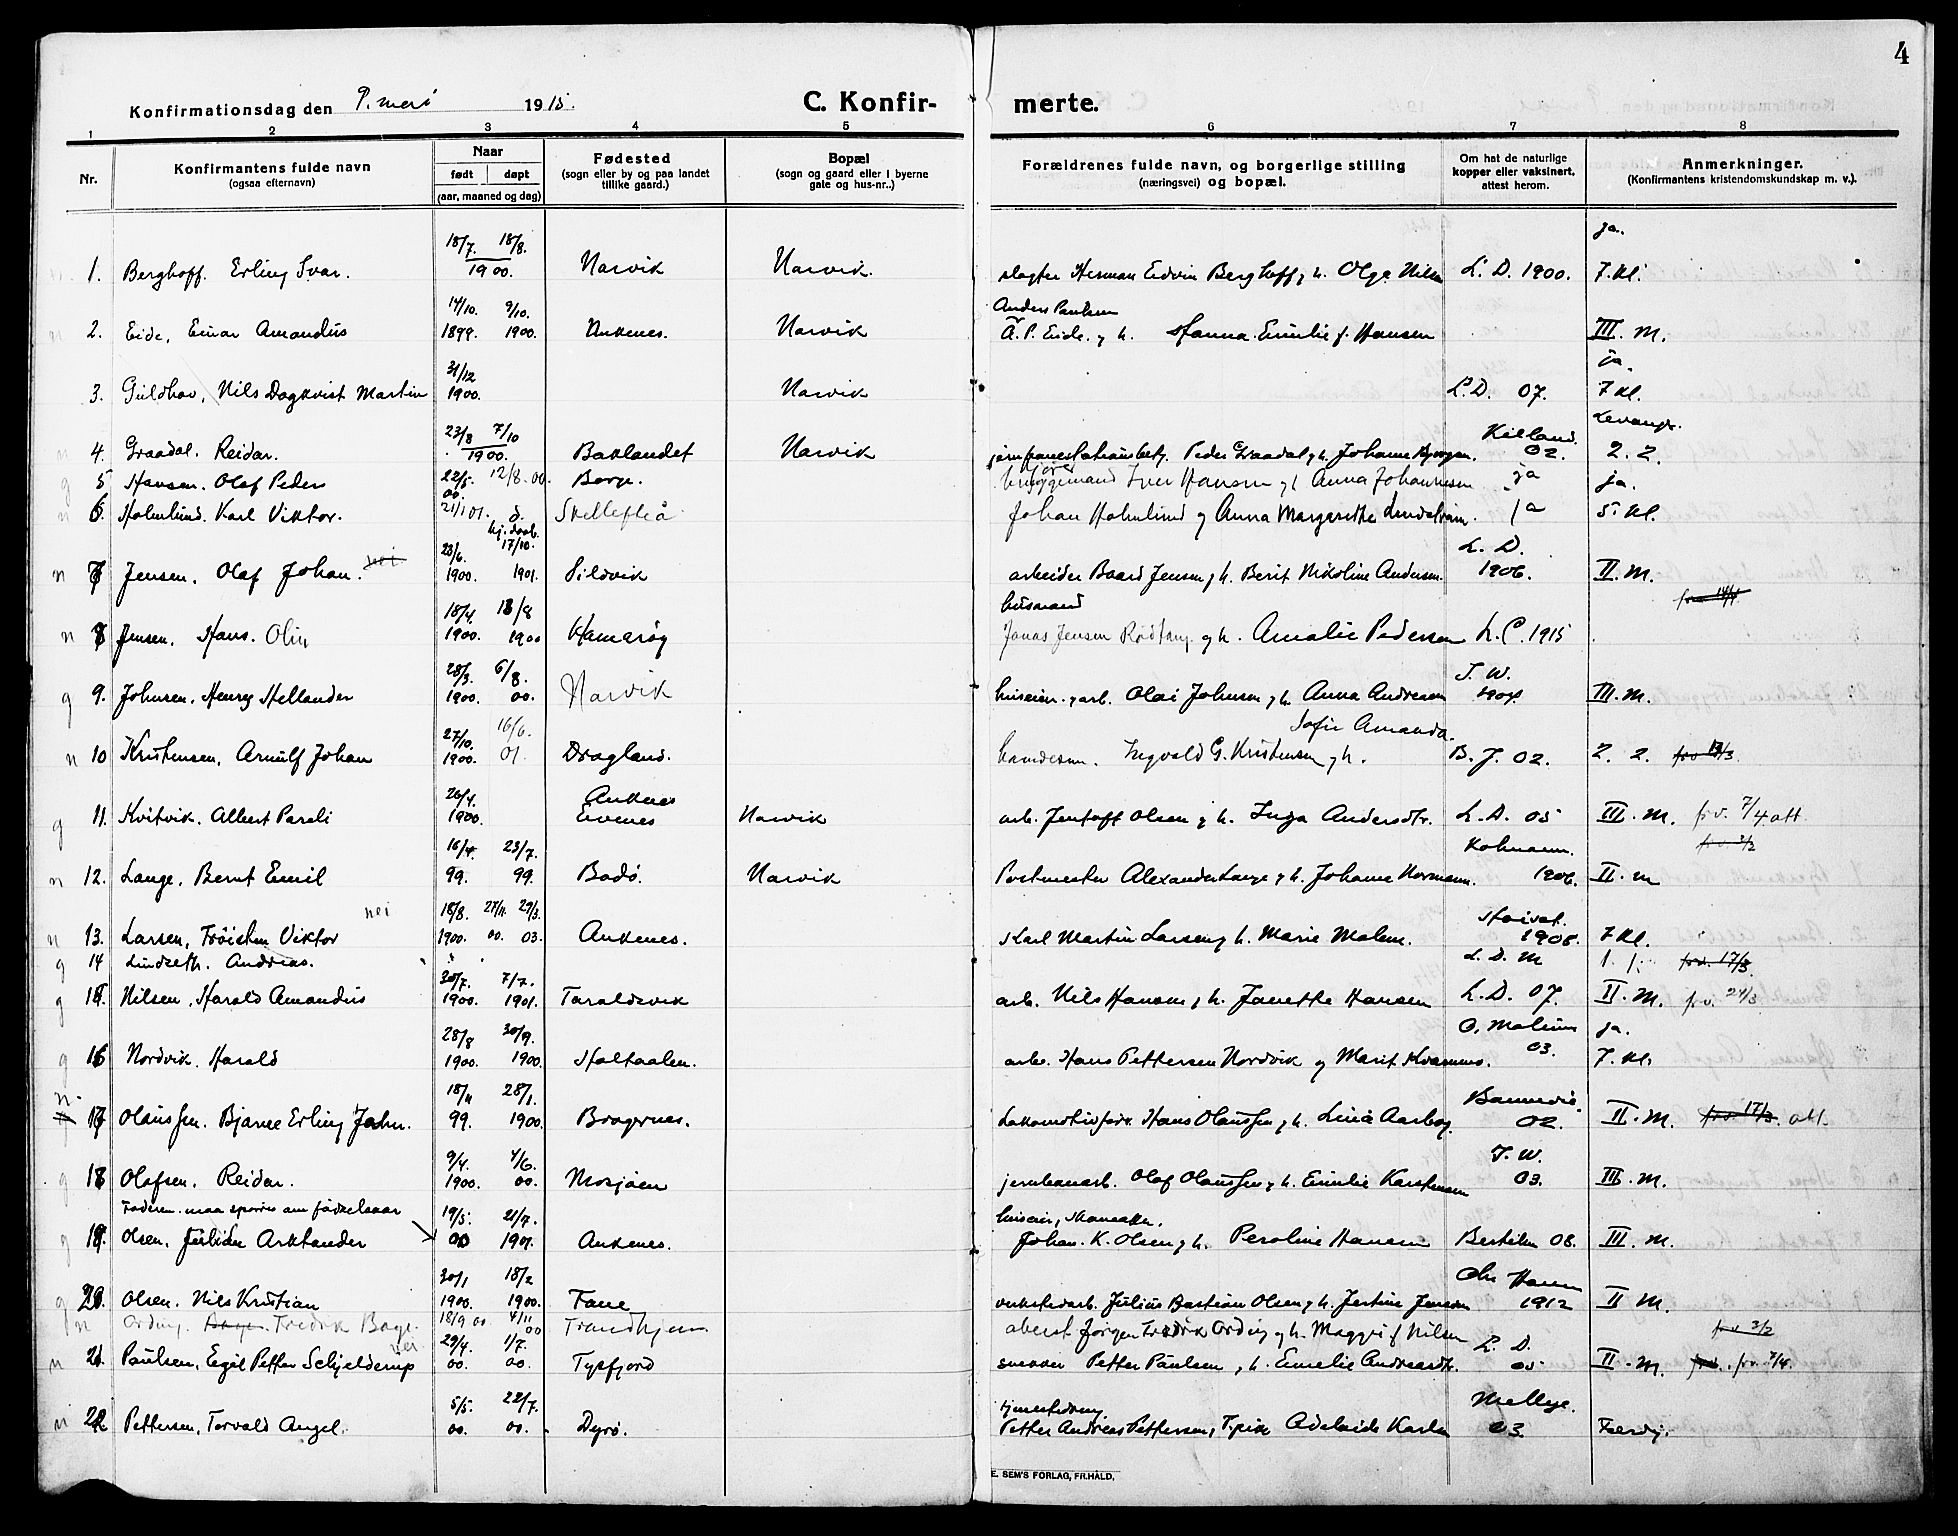 4
Konfirmationsdag den 9. mai 1915.
C. Konfir-merte.
1 2 3 4 5 6 7 8
Nr.
Konfirmantens fulde navn
(ogsaa efternavn)
Naar
født døpt
(aar, maaned og dag)
Fødested
(sogn eller by og paa landet
tillike gaard.)
Bopæl
(sogn og gaard eller i byerne
gate og hus-nr..)
Forældrenes fulde navn, og borgerlige stilling
(næringsvei) og bopæl.
Om hat de naturlige
kopper eller vaksinert,
attest herom.
Anmerkninger.
(Konfirmantens kristendomskundskap m. v.).
18/7. 18/8. ja.
1. Berghoff. Erling Ivar. 1900. Narvik Narvik. slagter Herman Edvin Berghoff, h. Olga Nilsen L. D. 1900. 7. Kl.
14/10. 9/10. Anders Paulsen
2. Eide, Einar Amandus 1899. 1900. Ankenes. Narvik A. P. Eide. g h. Hanna Emilie f. Hansen III. M.
31/12 ja.
3. Guldhav, Nils Dagkvist Martin 1900. Narvik L. D. 07. 7 Kl.
23/8 7/10 Kielland. Levanger.
4. Graadal. Reidar. 1900. Baklandet Narvik Peder Graadal g h. Johanne 02. 2. 2.
g 5 Hansen. Olaf Peder 22/5. 00. 12/8. 00. Borge. Iver Hansen g h Anna Johannesen ja ja.
n 6. Holmlund. Karl Viktor. 21/1 01. d. Skellefteå Johan Holmlund g Anna Margarethe Lundstrøm. ja 5. Kl.
hj. døpt.
23/6. 17/10. L. D.
n 7 Jensen. Olaf Johan. nei 1900. 1901. Sildvik arbeider Baard Jensen g h. Berit Nikoline Andersen. 1906. II. M.
18/4. 18/8 husmand prv. 14/4.
n 8 Jensen. Hans. Olin 1900. 1900 Hamarøy Jonas Jensen g h. Amalie Pedersen L. C. 1915
28/3. 6/8. T. W.
g 9. Johnsen, Henry Hellander 1900. 00. Narvik huseier. g arb. Olai Johnsen g h. Anna Andresen 1904 III. M.
27/10. 16/6. Sofie Amanda.
n 10 Kristensen, Arnulf Johan 1900. 01. Dragland. Ingvald G. Kristensen g h. B. J. 02. 2. 2. prv 13/3.
26/4. Ankenes
g 11. Kvitvik. Albert Pareli 1900. Evenes Narvik arb. Jentoft Olsen g h. Inga Andersdtr. L. D. 05 III. M. prv. 7/4 att.
16/4. 23/7. Kolmann. prv. 3/2
n 12. Lange, Bernt Emil 99. 99. Bodø. Narvik Postmester Alexander Lange g h. Johanne Normann. 1906. II. m
nei 18/8. 27/11. 29/3.
n 13. Larsen, Viktor 1900. 00. 03. Ankenes. Karl Martin Larsen g h. Marie Malene. 1908. 7 Kl.
g 14 Lindseth. Andreas. L. D. M 1. prv. 17/3.
30/7. 7/7.
g 15. Nilsen, Harald Amandus 1900. 1901. Taraldsvik arb. Nils Hansen g h. Janette Hansen L. D. 07. II. M. prv. 24/3
28/8 30/9. O. Malum ja.
g 16 Nordvik. Harald 1900. 1900. Holtaalen. arb. Hans Pettersen Nordvik g Marit Kvammo. 03. 7. Kl.
18/11 28/1.
n. 17 Olaussen. Bjarne Erling John. 99. 1900. Bragernes. Lokomotivfør. Hans Olaussen g h. Lina Aarbog. 02. II. M. prv. 17/3. att.
9/4. 4/6. T. W.
g 18 Olafsen. Reidar. 1900. 00. Mosjøen jernbanearb. Olaf Olaussen g h. Emilie Karstensen 03. III. M.
Faderen maa spørres om fødselsaar 19/5. 21/7. huseier,
g 19. Olsen, Julian Arktander 00 1901. Ankenes. Johan. K. Olsen g h. Peroline Hansen Bertelsen 08. III. M.
30/1 18/2 Chr Hansen
g 20. Olsen. Nils Kristian 1900. 1900. Fane verkstedarb. Julius Bastian Olsen g h. Jertine Jensen 1912 II M.
n Ording. Fredrik Bage. 18/9 00 4/11 00 Trondhjem oberst Jørgen Fredrik Ording g h. Maggri f Nilsen prv 3/2
nei 29/4. 1/7. L. D.
n 21. Paulsen, Egil Petter Schjelderup 00. 00. Tysfjord snekker Petter Paulsen g h. Emelie Andreasdtr. 05 II. M. prv. prv. 7/4.
5/5. 22/7. Mellbye.
n 22 Pettersen, Torvald Angel. 00. 00. Dyrø. Petter Andreas Pettersen, Adelaide Karla 03. Færdig.
E. SEM'S FORLAG, FR.HALD.